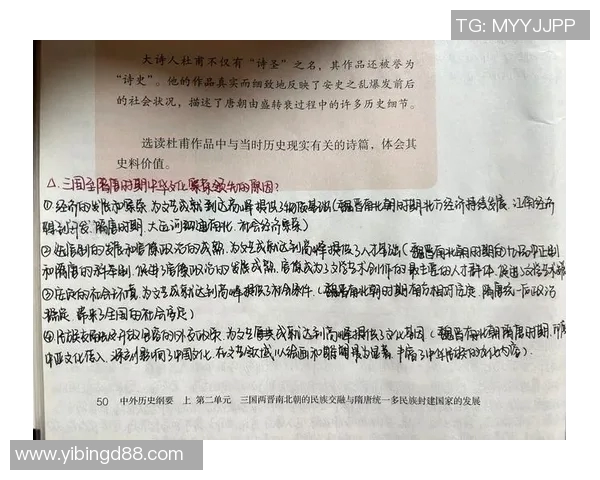 TG: MYYJJPP
大诗人杜甫不仅有“诗圣”之名，其作品还被誉为
“诗史”。他的作品真实而细致地反映了安史之乱爆发前后
的社会状况，描述了唐朝由盛转衰过程中的许多历史细节。
选读杜甫作品中与当时历史现实有关的诗篇，体会其
史料价值。
△三国至隋唐时期中华文化繁荣领先的原因？
①经济的发展和繁荣，为文艺成就达到高峰提供了物质基础（魏晋南北朝时期北方经济持续发展，江南经济
得到开发，隋唐时期，大运河沟通南北，社会经济繁荣）
②选官制的发展和官僚政治的成熟，为文艺成就达到高峰提供了人才基础（魏晋南北朝时期的九品中正制
和隋唐的科举制，促进了官僚政治的发展成熟，官僚成为了文学艺术创作的最主要的人才群体，促进文学艺术
③安定的社会环境，为文艺成就达到高峰提供了社会条件（魏晋南北朝时期南方相对安定，隋唐统一后政治
稳定，带来了全国的社会安定）
④民族交融和开放的外交政策，为文艺成就达到高峰提供了文化基因（魏晋南北朝隋唐时期，印度
中亚文化传入，深刻影响了中国文化，在文学以绘画和雕塑最为显著，丰富了中华民族的文化内容）
50 中外历史纲要 上 第二单元 三国两晋南北朝的民族交融与隋唐统一多民族封建国家的发展
www.yibingd88.com